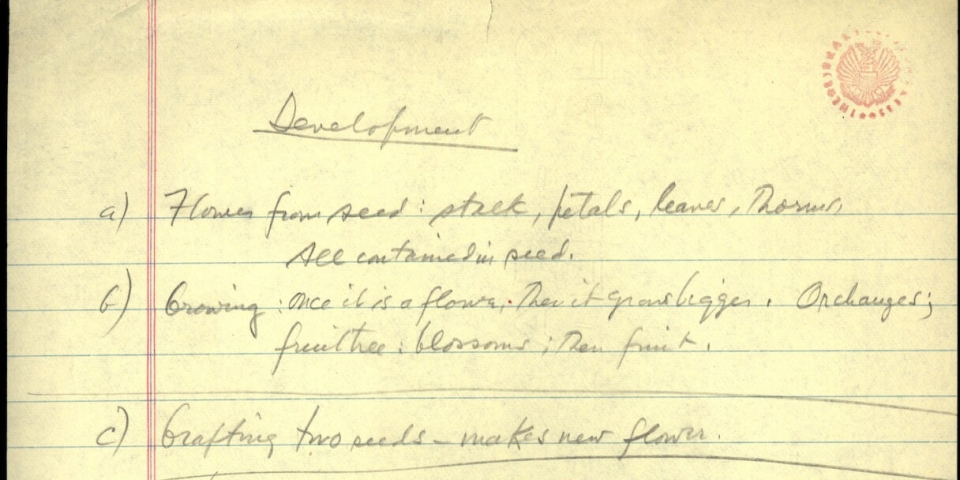 Development
a) Flower from seed: stalk, petals, leaves, thorns,
All contained in seed.
b) Growing: once it is a flower, then it grows bigger. Or changes;
fruit tree: blossoms; then fruit.
c) Grafting two seeds – makes new flower.